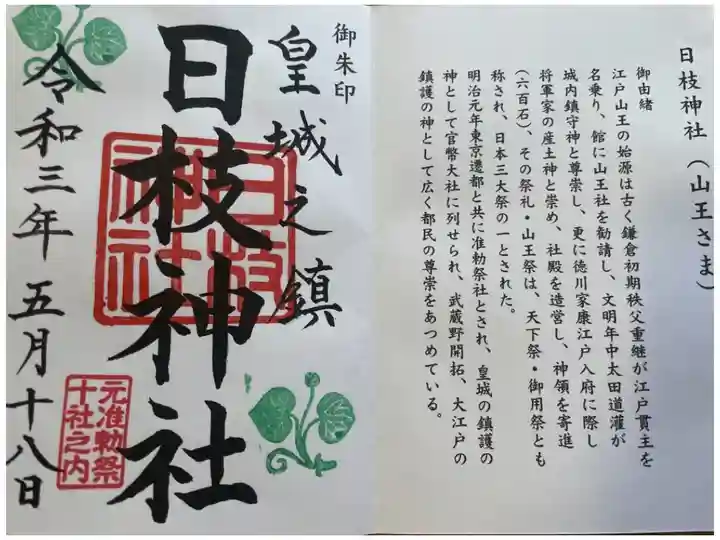 日枝神社(山王さま)
御由緒
江戸山王の始源は古く鎌倉初期秩父重継が江戸貫主を
名乗り、館に山王社を勧請し、文明年中太田道灌が
城内鎮守神と尊崇し、更に徳川家康江戸入府に際し
将軍家の産土神と崇め、社殿を造営し、神領を寄進
(六百石)、その祭礼・山王祭は、天下祭・御用祭とも
称され、日本三大祭の一とされた。
明治元年東京遷都と共に准勅祭社とされ、皇城の鎮護の
神として官幣大社に列せられ、武蔵野開拓、大江戸の
鎮護の神として広く都民の尊崇をあつめている。
御朱印
皇城之鎮
日枝神社
日枝
神社
令和三年五月十八日
元准勅祭
十社之内